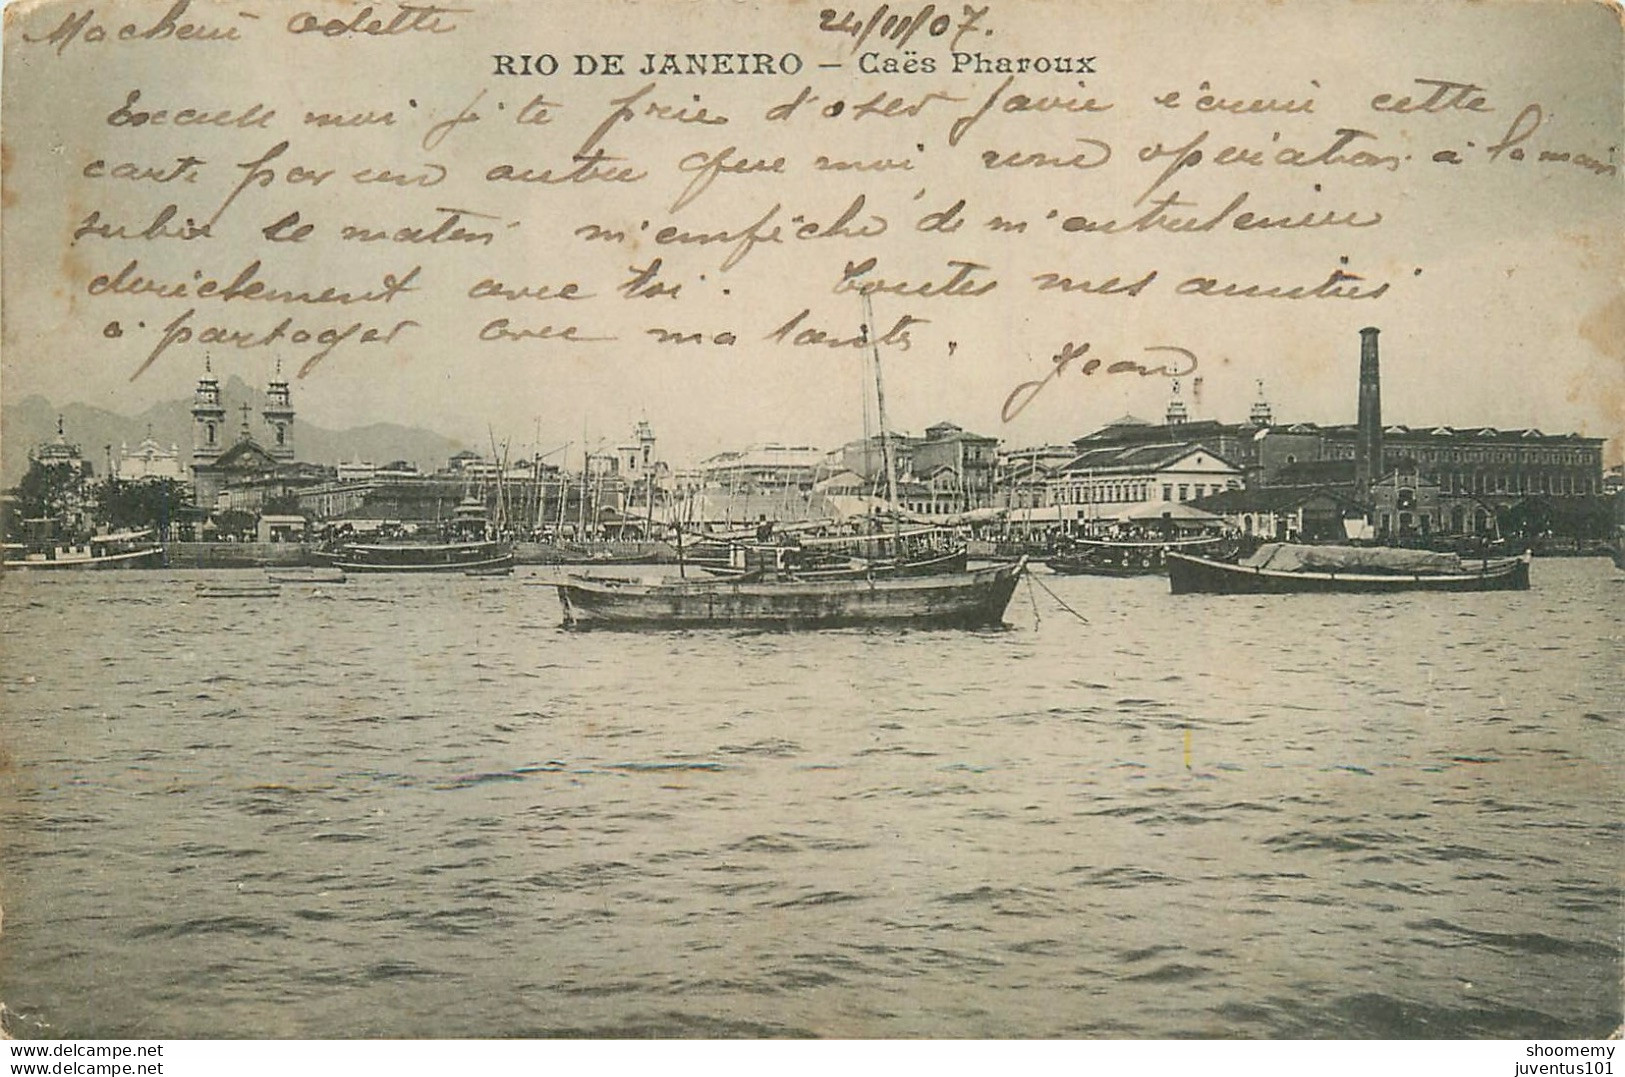 Ma cherie Odette 24/11/07.
RIO DE JANEIRO – Caës Pharoux
Excuse moi je te prie d'oser faire écrire cette
carte par un autre que moi, une opération à la main
subie ce matin m'empêche de m'entretenir
directement avec toi. Toutes mes amitiés
à partager avec ma tante.
Jean
www.delcampe.net
juventus101
shoomemy
juventus101